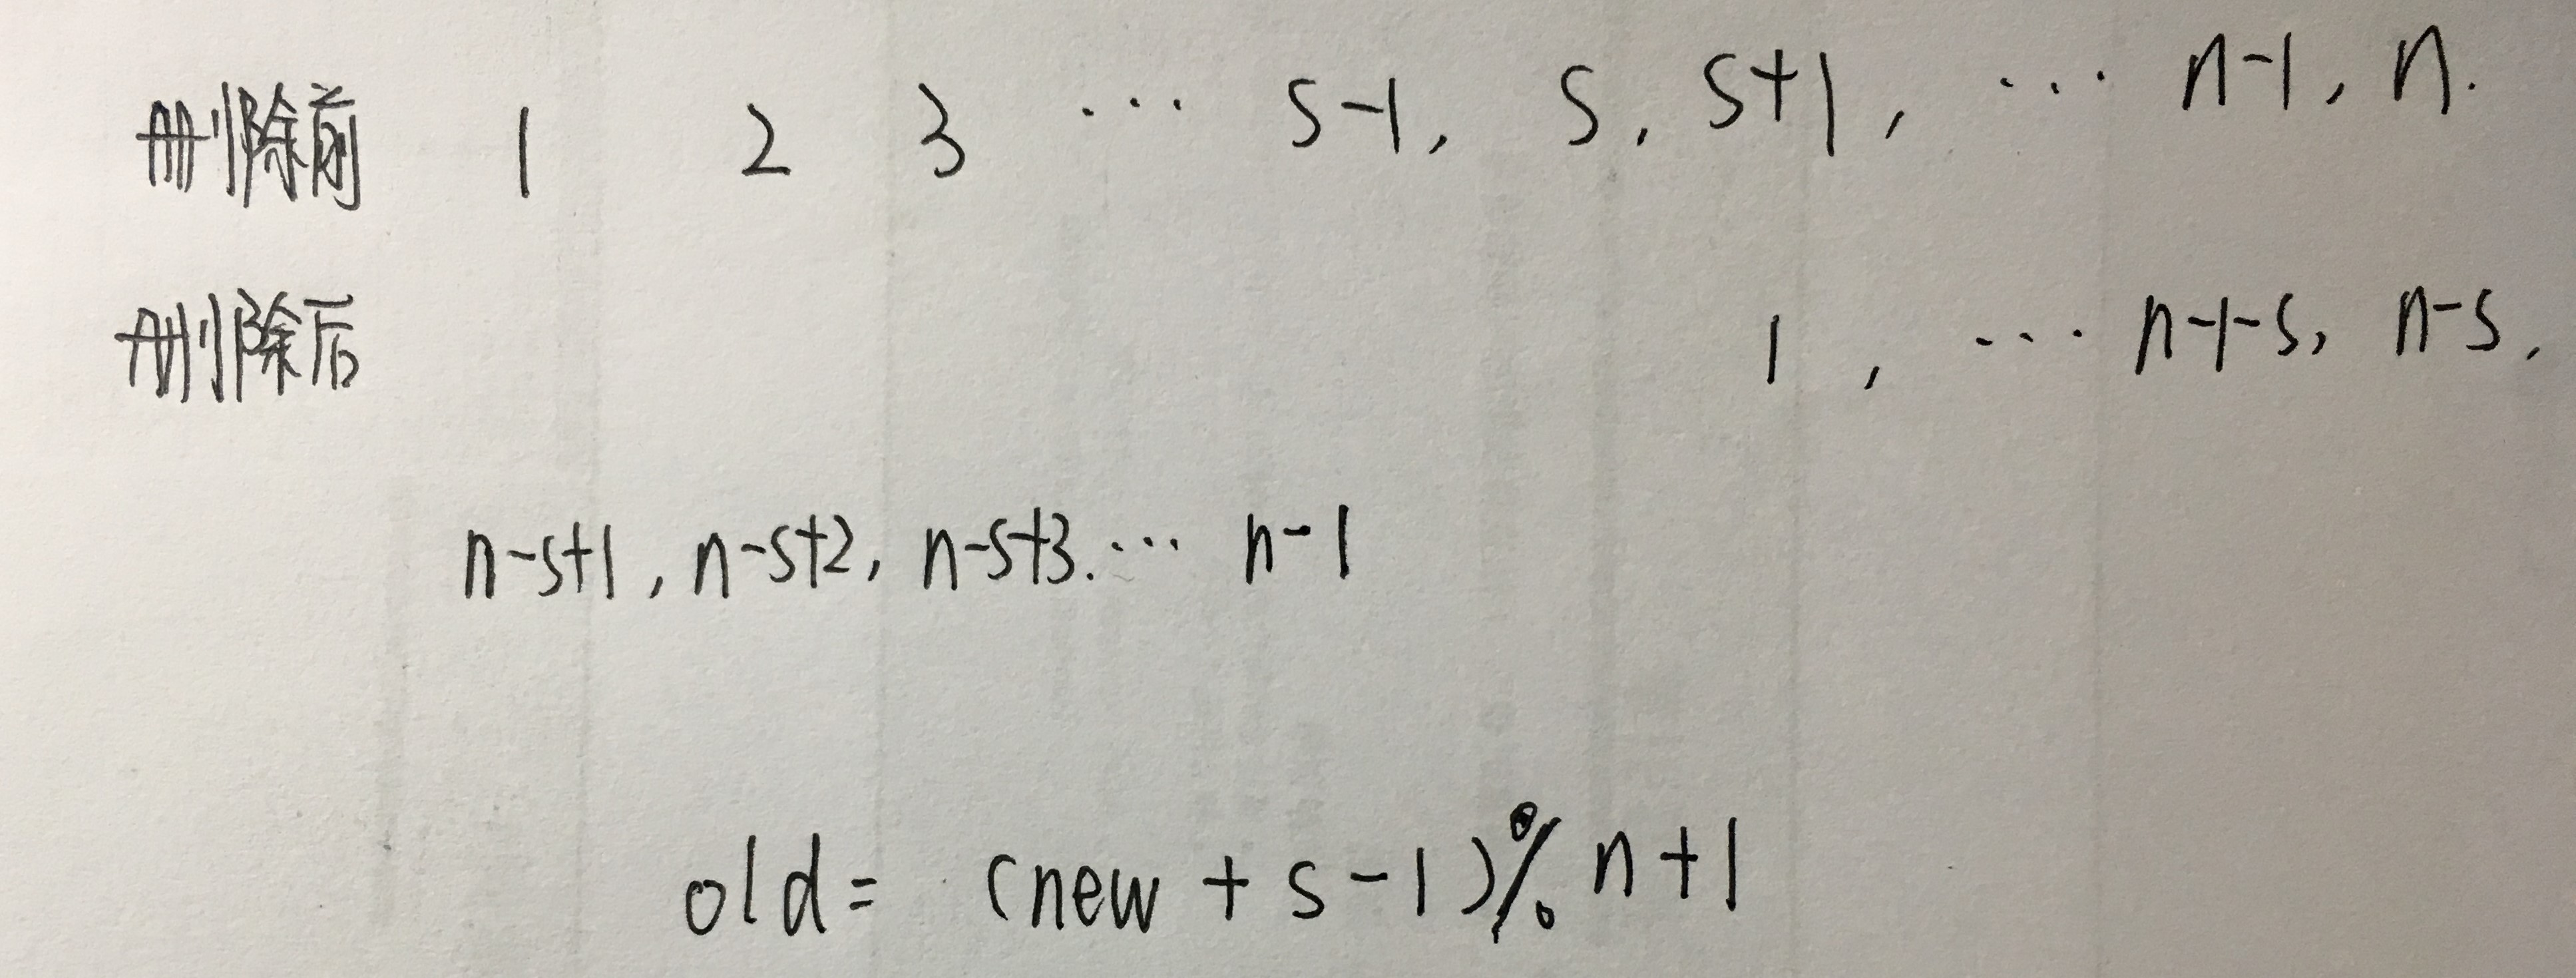 删除前 1 2 3 ... s-1, s, s+1, ... n-1, n.
删除后 1, ... n-1-s, n-s,
n-s+1, n-s+2, n-s+3. ... n-1
old = (new + s - 1)% n + 1